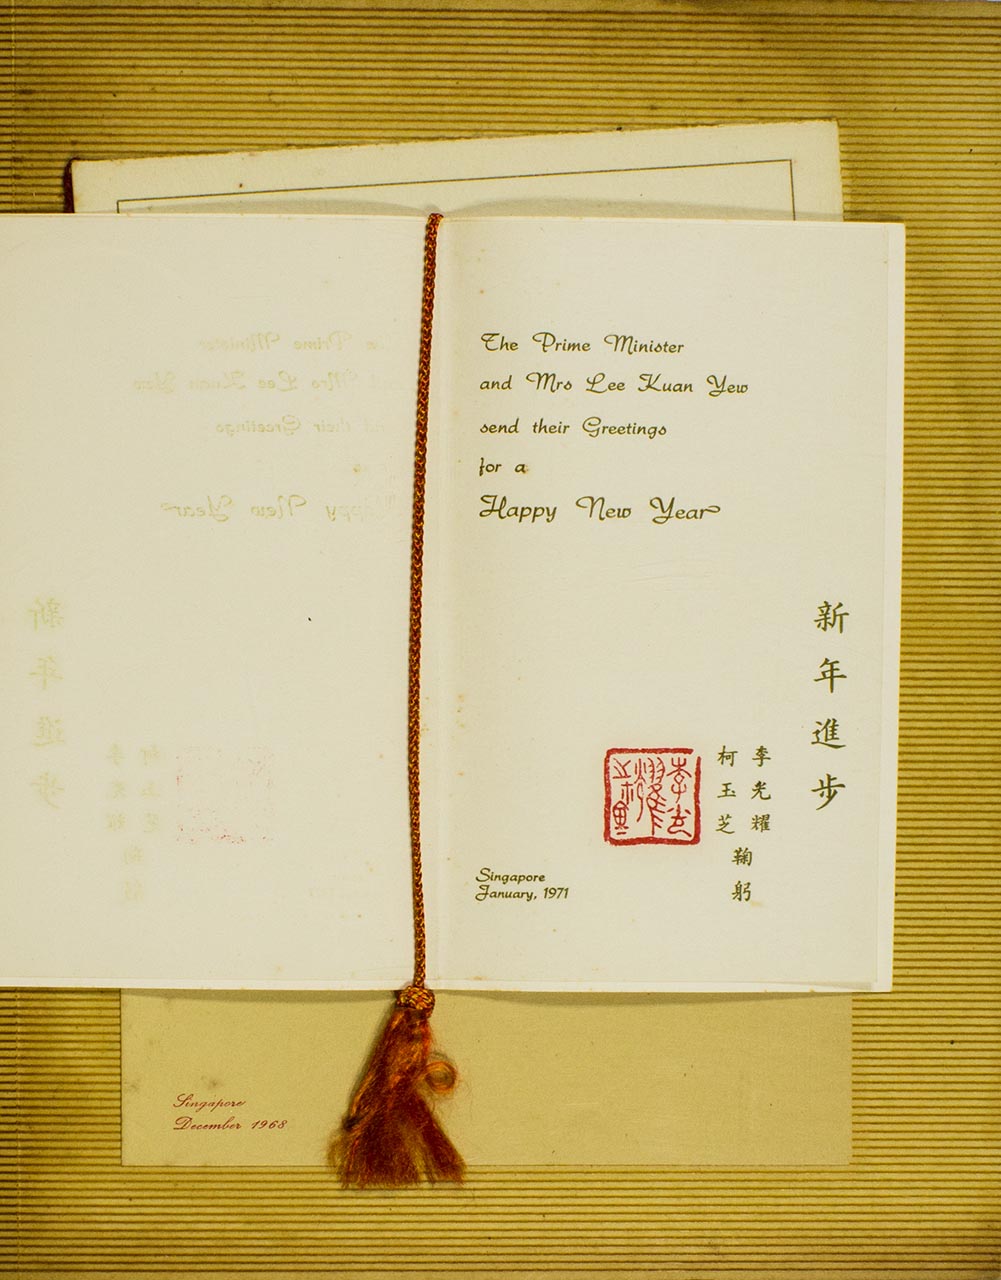 The Prime Minister
and Mrs Lee Kuan Yew
send their Greetings
for a
Happy New Year
新年進步
李光耀
柯玉芝
鞠躬
Singapore
January, 1971
Singapore
December 1968